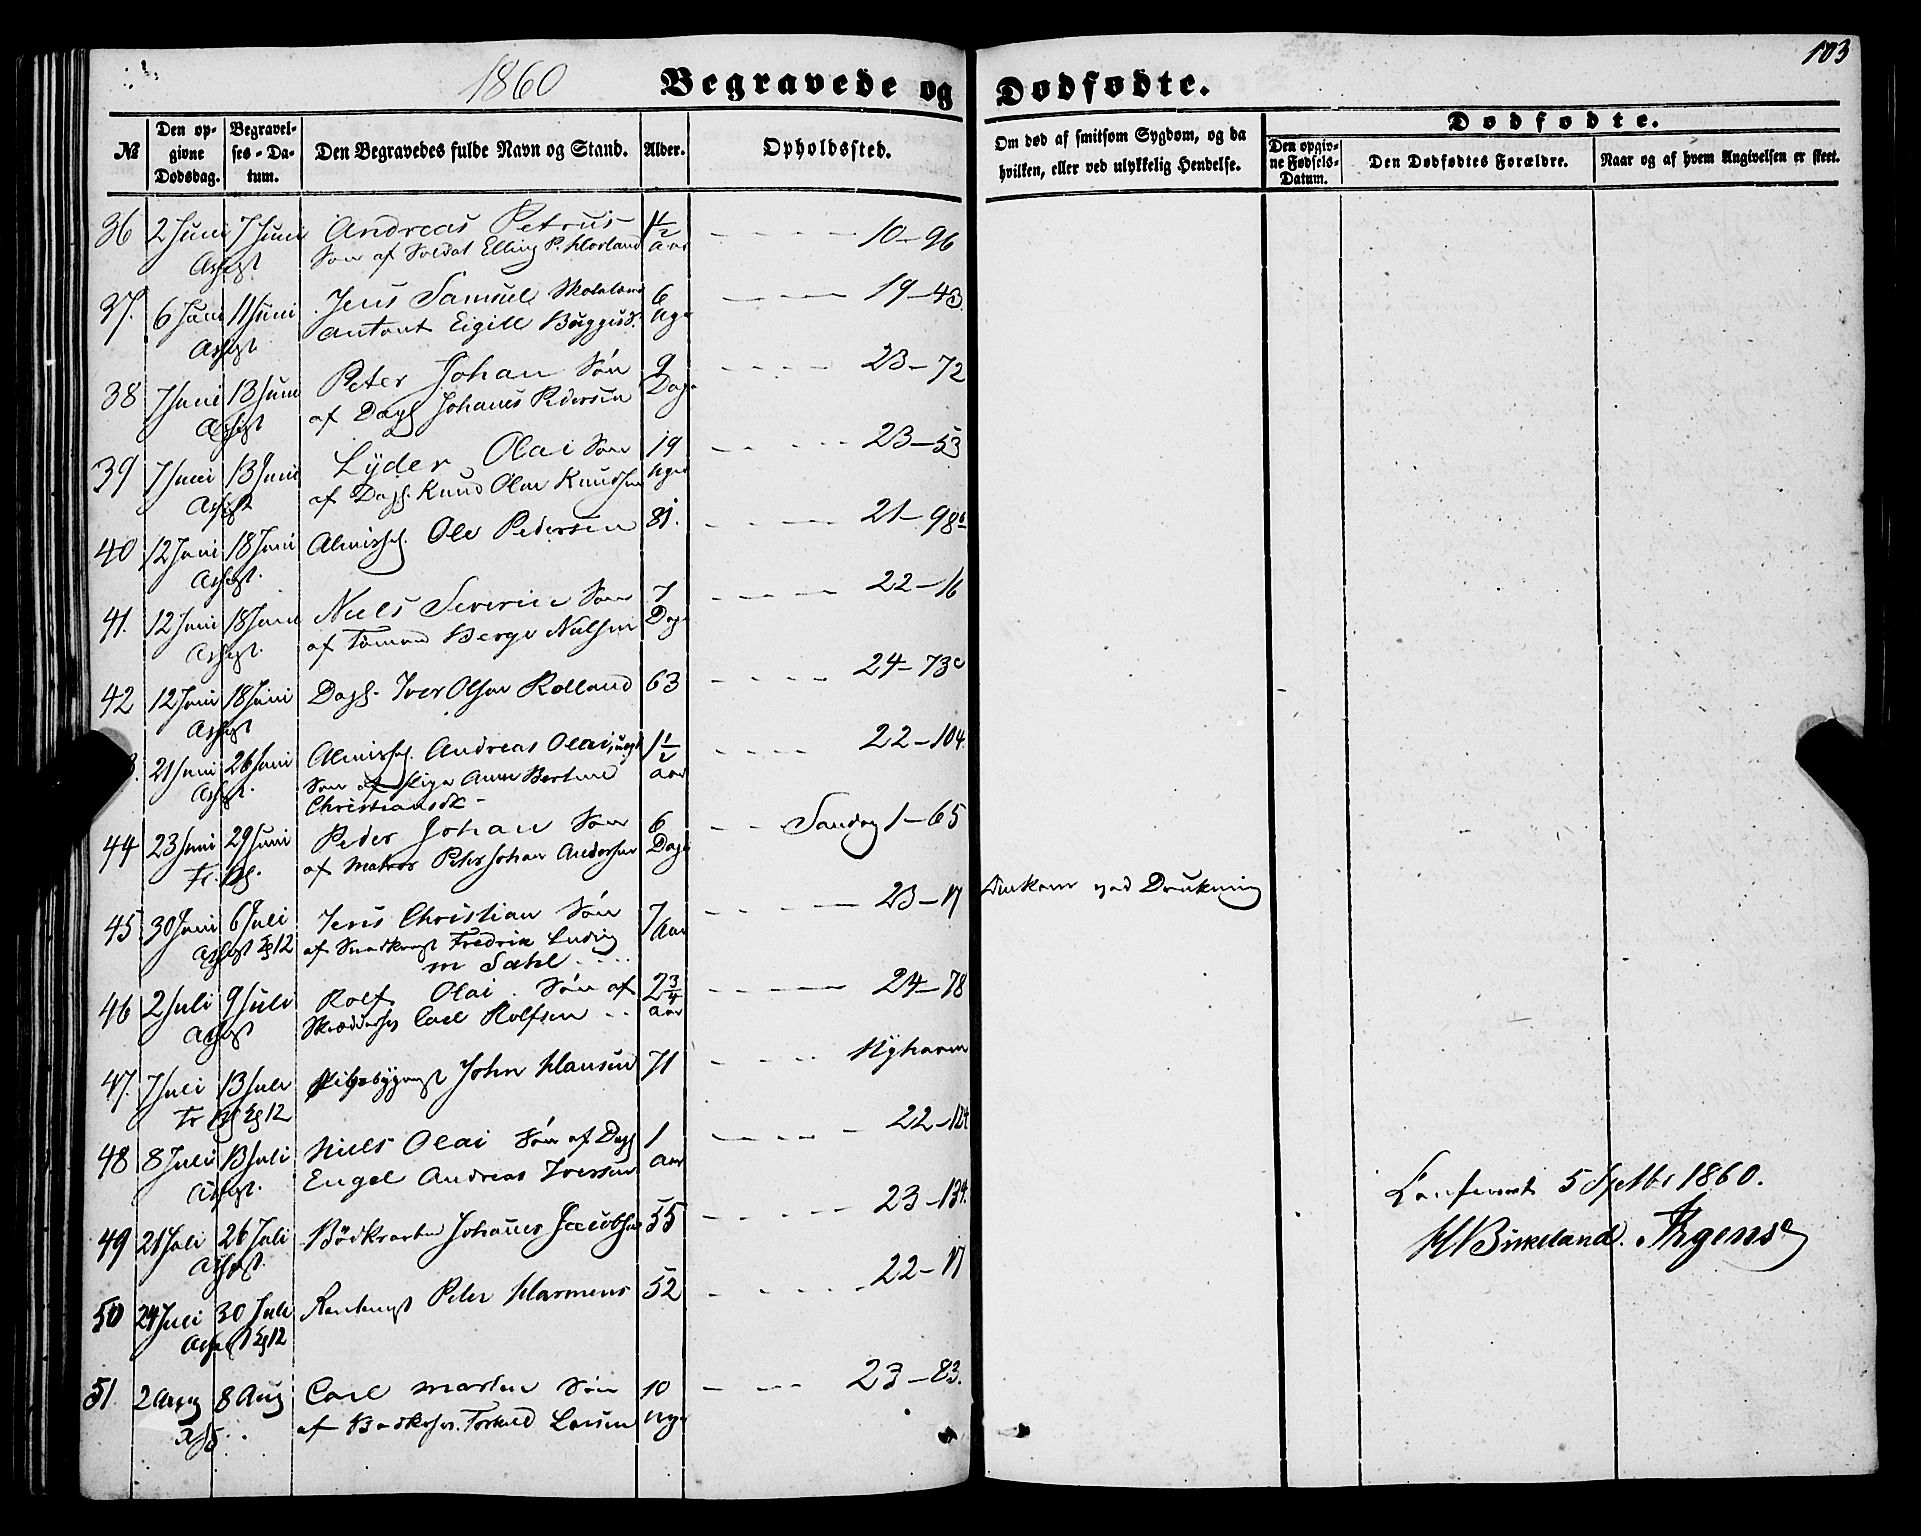 1860 Begravede og Dødfødte. 103
№ Den opgivne Dødsdag. Begravelses-Datum. Den Begravedes fulde Navn og Stand. Alder. Opholdssted. Om død af smitsom Sygdom, og da hvilken, eller ved ulykkelig Hendelse. Dødfødte.
Den opgivne Fødsels-Datum. Den Dødfødtes Forældre. Naar og af hvem Angivelsen er skeet.
36 2 Juni 7 Juni Andreas Petrus 1½ 10-96
Søn af Soldat Elling P. Horland Aar
37. 6 Juni 11 Juni Jens Samuel 6 19-43
Eigill
38 7 Juni 13 Juni Peter Johan Søn 9 23-72
af Dagl Johanes Pedersen Dage
39 7 Juni 13 Juni Lyder Olai Søn 19 23-53
af Dagl. Knud Olai Knudsen Uger
40 12 Juni 18 Juni Ole Pedersen 81. 21-98
41. 12 Juni 18 Juni Niels Severin Søn 7 22-16
af Tømmd Berge Nielsen Dage
42 12 Juni 18 Juni Dagl. Iver Olsen Rolland 63 24-73c
21 Juni 26 Juni Andreas Olai 1½ 22-104.
Søn af Pige Anne Bertine Aar
Christiansdt
44 23 Juni 29 Juni Peder Johan Søn 6 Sandvig 1-65
af Matros Peter Johan Andersen Dage
45 30 Juni 6 Juli Jens Christian Søn 7 23-17 Omkom ved Drukning
af Fredrik Ludvig Aar
m Sæhl
46 2 Juli 9 Juli Rolf Olai Søn af 2¾ 24-78
Carl Rolfsen Aar
47. 7 Juli 13 Juli John Hansen 71 Nyhavn
48 8 Juli 13 Juli Niels Olai Søn af Dagl 1 22-124
Engel Andreas Iversen Aar
49 21 Juli 26 Juli Johannes Jacobsen 55 23-134.
50 24 Juli 30 Juli Peter Harmens 52 22-17
51. 2 Aug 8 Aug Carl Martin Søn 10 23-83.
af Torkild Larsen Uger
Confereret 5 Septbr 1860.
H Birkeland. Irgens